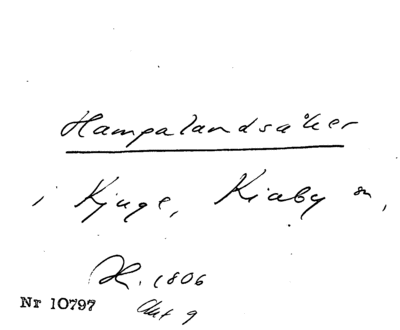 Hampalandsåker
i Kjuge, Kiaby sn,
H. 1806
Nr 10797
Akt 9